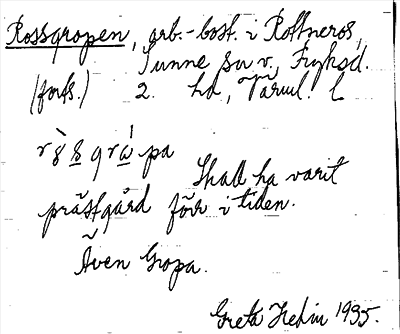 Rossgropen, arb.-bost. i Rottneros,
Sunne sn v. Fryksd.
(forts.) 2. hd, Värml. l
Skall ha varit
prästgård förr i tiden.
Även Gropa.
Greta Hedin 1935.